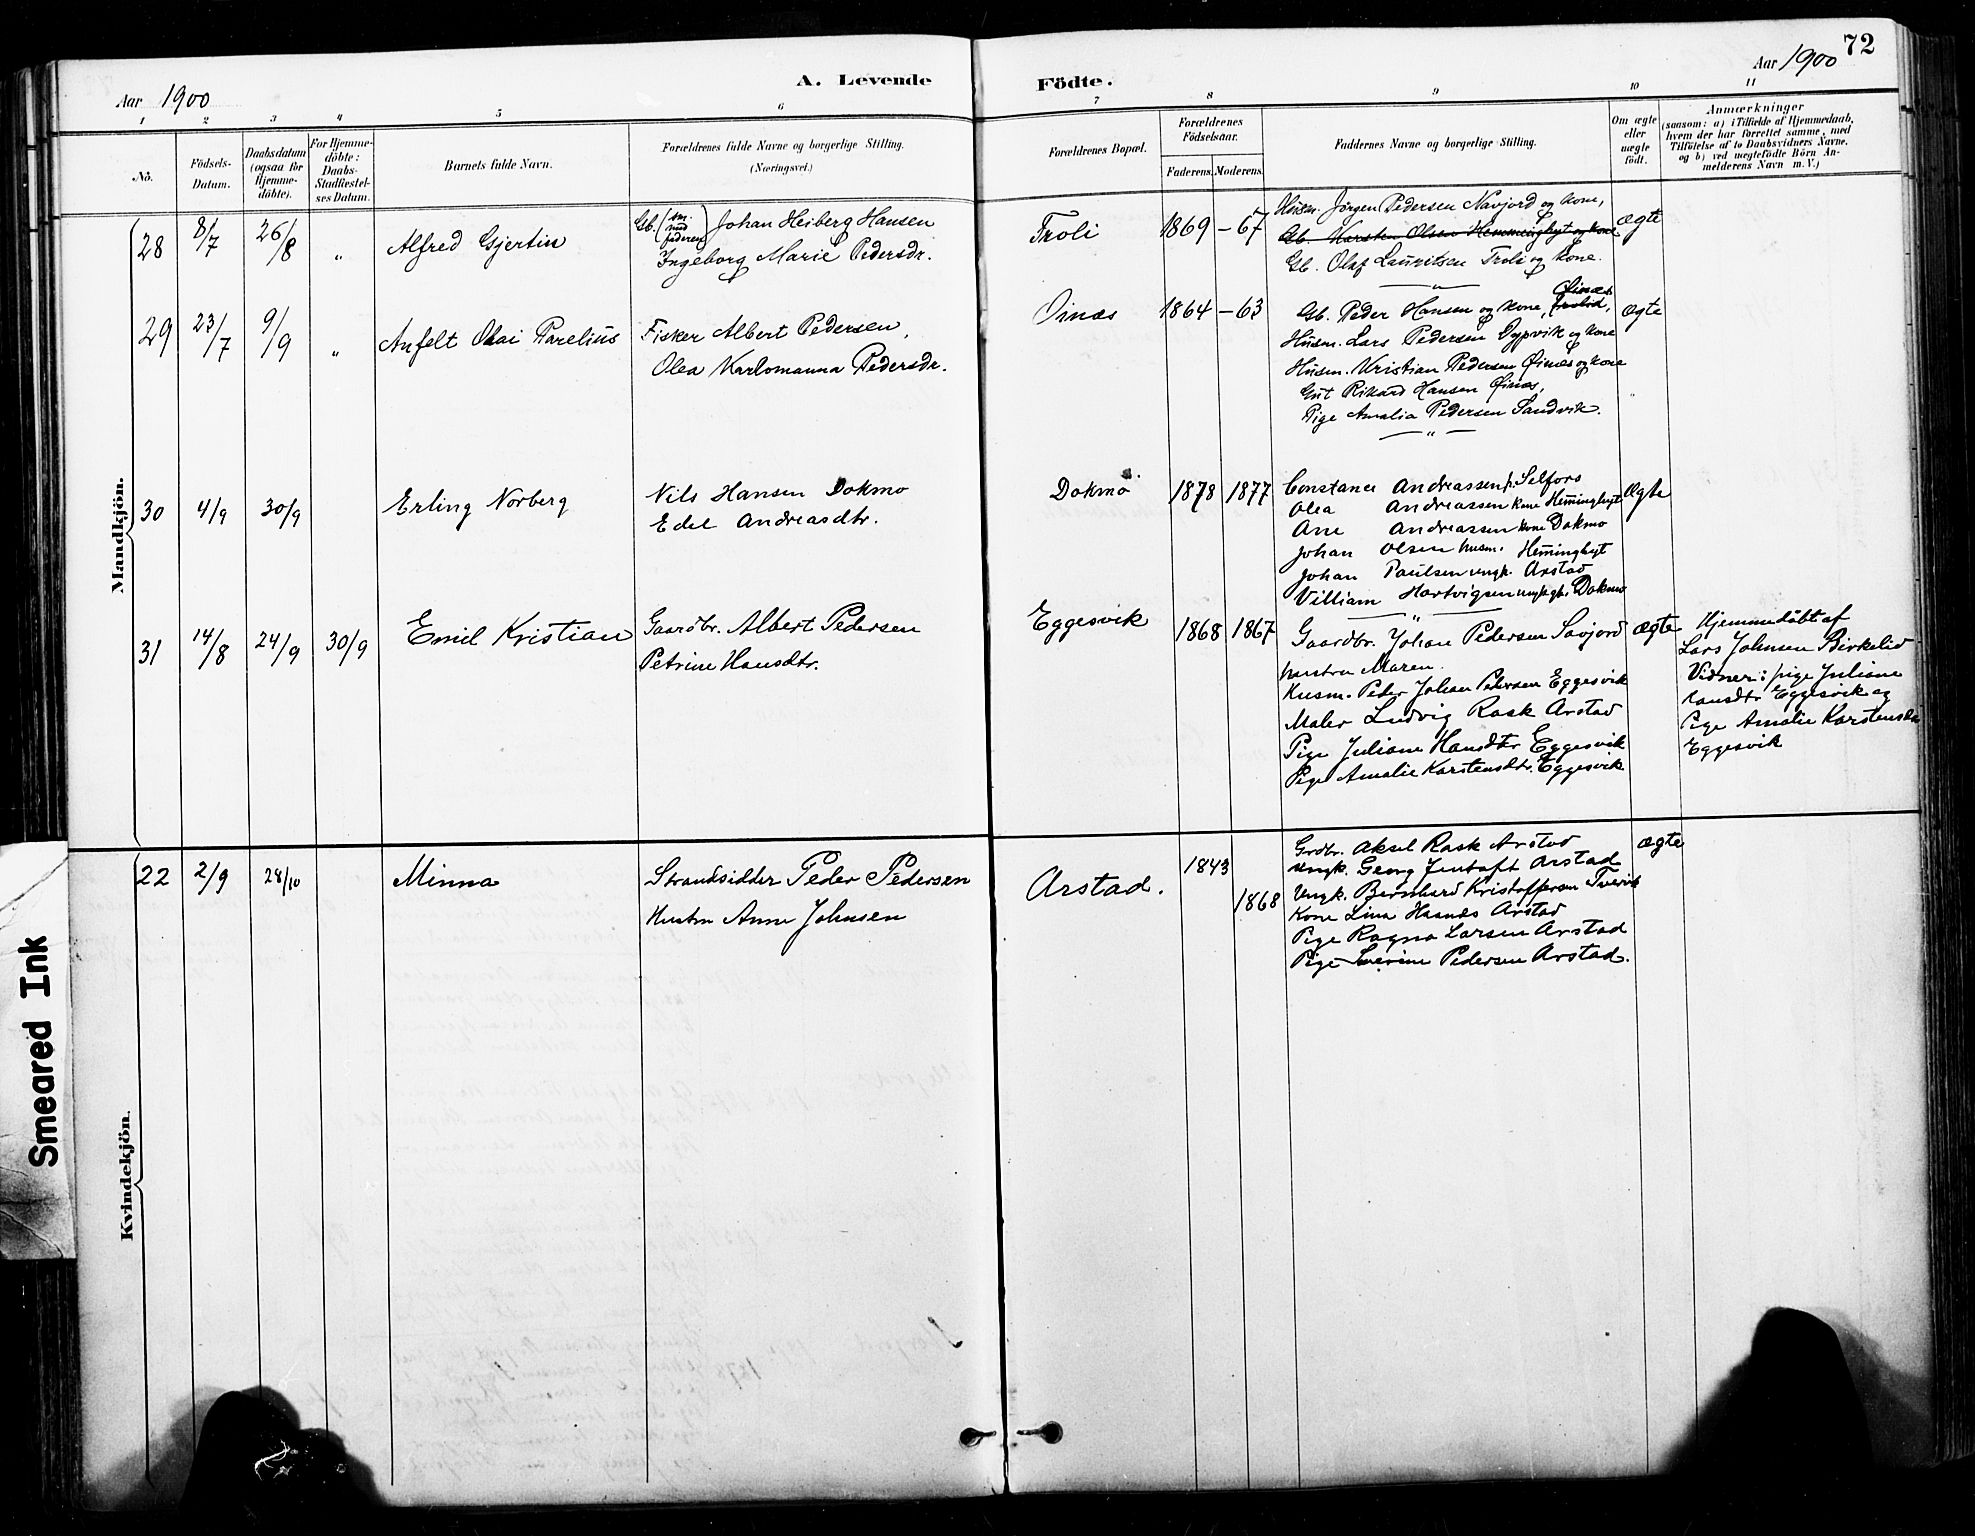 72
Aar 1900
A. Levende
Födte.
Aar 1900
1 2 3 4 5 6 7 8 9 10 11
No.
Födsels-Datum.
Daabsdatum (ogsaa for Hjemme-döbte).
For Hjemme-döbte: Daabs-Stadfæstel-ses Datum.
Barnets fulde Navn.
Forældrenes fulde Navne og borgerlige Stilling.
(Næringsvei.)
Forældrenes Bopæl.
Forældrenes Födselsaar.
Faderens. Moderens.
Faddernes Navne og borgerlige Stilling.
Om ægte eller uægte födt.
Anmærkninger
(saasom: a) i Tilfælde af Hjemmedaab,
hvem der har forrettet samme, med
Tilföielse af to Daabsvidners Navne,
og b) ved uægtefödte Börn An-
melderens Navn m. V.)
Mandkjön.
28 8/7 26/8 " Alfred Gjertin
Gb. (sm. med faderen) Johan Heiberg Hansen
Ingeborg Marie Pedersdr.
Troli 1869 - 67
Husm. Jörgen Pedersen Navjord og kone,
Gb. Karsten Olsen Hemmingbyt og kone
Gb. Olaf Lauritsen Troli og kone.
ægte
29 23/7 9/9 " Anfelt Olai Parelius
Fisker Albert Pedersen,
Olea Karlomanna Pedersdr.
Öinæs 1864 - 63
Gb. Peder Hansen og kone, Öinæs,
Husm. Lars Pedersen Dypvik og kone
Husm. Kristian Pedersen Öinæs og kone
Gut Rikard Hansen Öinæs,
Pige Amalia Pedersen Sandvik.
ægte
30 4/9 30/9 Erling Norberg
Nils Hansen Dokmo
Edel Andreasdtr.
Dokmo 1878 1877
Constance Andreassen p. Selfors
Olea Andreassen kone Hemingbyt
Ane Andreassen kone Dokmo
Johan Olsen husm. Hemingbyt
Johan Paulsen ungk. Arstad
Villiam Hartvigsen ungk. Dokmo
Ægte
31 14/8 24/9 30/9 Emil Kristian
Gaardbr. Albert Pedersen
Petrine Hansdtr.
Eggesvik 1868 1867
Gaardbr. Johan Pedersen Savjord
hustru Maren.
Husm. Peder Johan Pedersen Eggesvik
Maler Ludvig Rask Arstad
Pige Juliane Hansdtr Eggesvik
Pige Amalie Karstensdtr. Eggesvik
ægte
Hjemmedöbt af
Lars Johnsen Birkelid
Vidner: pige Juliane
hansdtr Eggesvik og
Pige Amalie Karstensdtr
Eggesvik
Kvindekjön.
22 2/9 28/10 Minna
Strandsidder Peder Pedersen
Hustru Anne Johnsen
Arstad. 1843 1868
Grdbr. Aksel Rask Arstad
Ungk. Georg Jentoft Arstad
Ungk. Bernhard Kristoffersen Tvervik
Kone Lina Hasnæs Arstad
Pige Ragna Larsen Arstad
Pige Severine Pedersen Arstad.
ægte
Smeared Ink